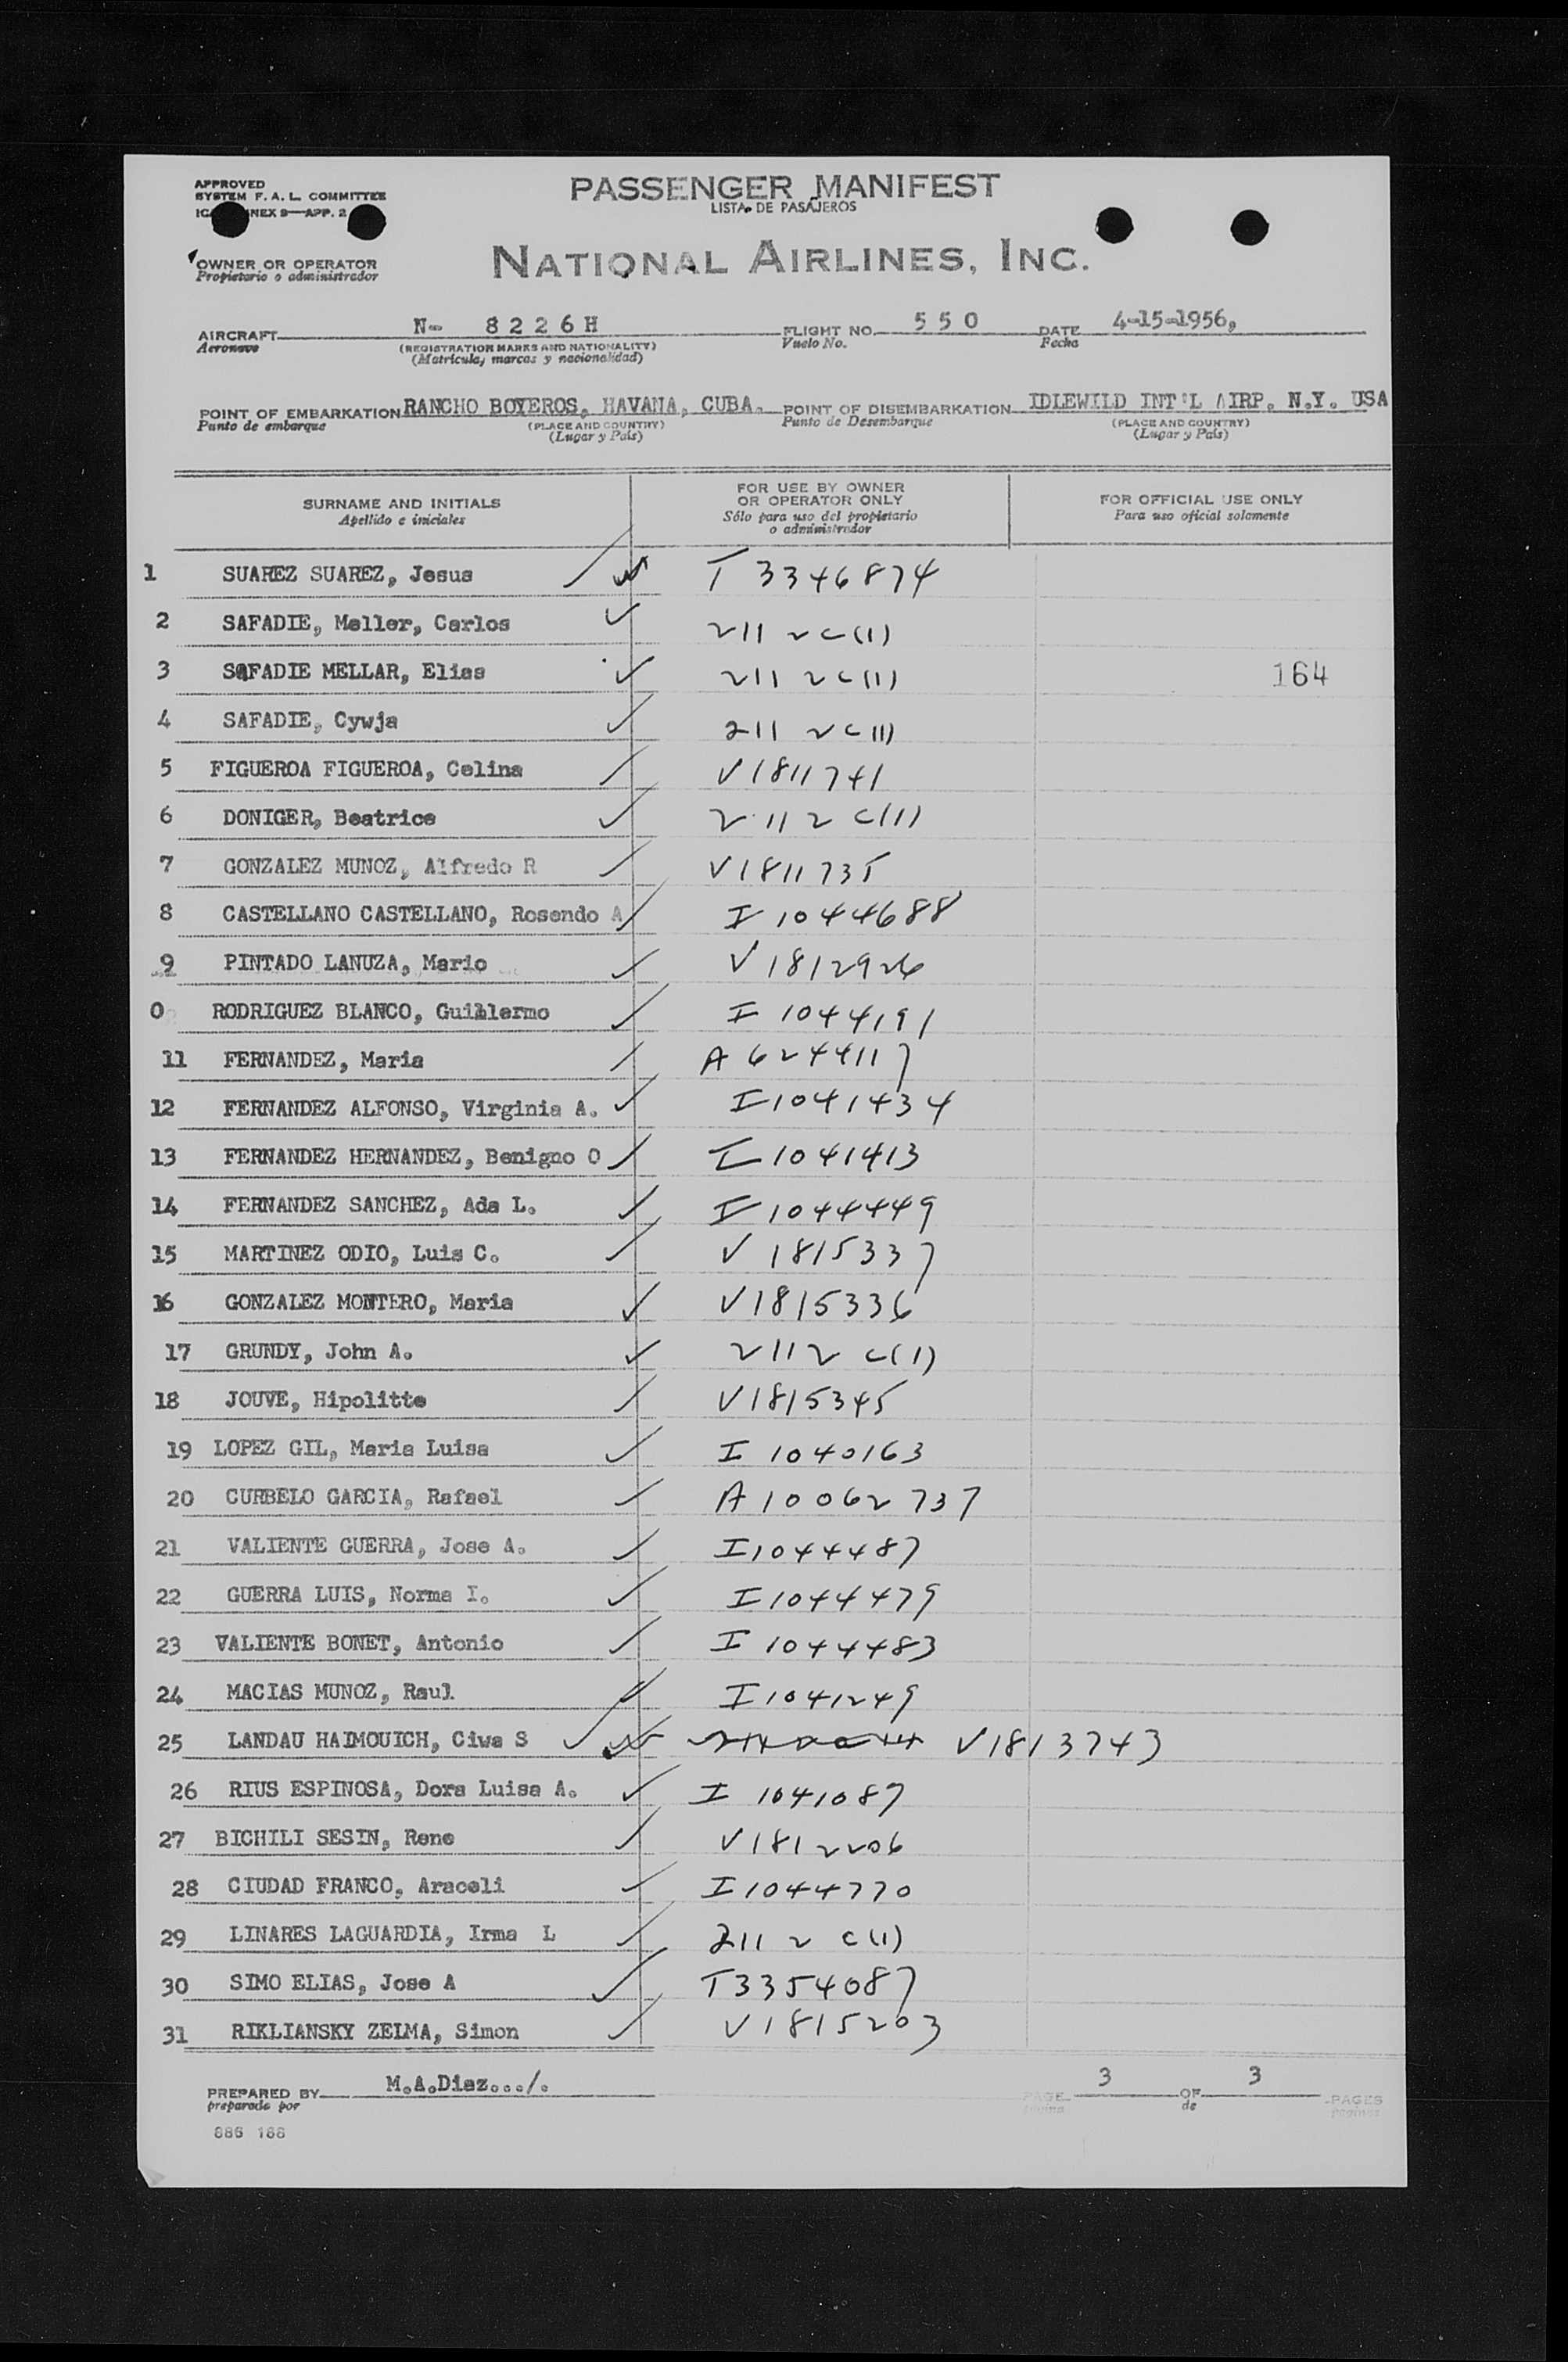 APPROVED
SYSTEM F. A. L. COMMITTEE
NEX 9—APP. 2
PASSENGER MANIFEST
LISTA DE PASAJEROS
OWNER OR OPERATOR
Propietario o administrador
NATIONAL AIRLINES, INC.
AIRCRAFT N- 8226H FLIGHT NO. 550 DATE 4-15-1956,
Aeronave (REGISTRATION MARKS AND NATIONALITY) Vuelo No. Fecha
(Matrícula, marcas y nacionalidad)
POINT OF EMBARKATION RANCHO BOYEROS, HAVANA, CUBA. POINT OF DISEMBARKATION IDLEWILD INT'L AIRP. N.Y. USA
Punto de embarque (PLACE AND COUNTRY) Punto de Desembarque (PLACE AND COUNTRY)
(Lugar y País) (Lugar y País)
SURNAME AND INITIALS
Apellido e iniciales
FOR USE BY OWNER
OR OPERATOR ONLY
Sólo para uso del propietario
o administrador
FOR OFFICIAL USE ONLY
Para uso oficial solamente
1 SUAREZ SUAREZ, Jesus T 3346874
2 SAFADIE, Meller, Carlos 211 2 C(1)
3 SAFADIE MELLAR, Elias 211 2 C(1) 164
4 SAFADIE, Cywja 211 2 C(1)
5 FIGUEROA FIGUEROA, Celina V1811741
6 DONIGER, Beatrice 211 2 C(1)
7 GONZALEZ MUNOZ, Alfredo R V1811735
8 CASTELLANO CASTELLANO, Rosendo A I 1044688
9 PINTADO LANUZA, Mario V 1812926
0 RODRIGUEZ BLANCO, Guillermo I 1044191
11 FERNANDEZ, Maria A 6244117
12 FERNANDEZ ALFONSO, Virginia A. I1041434
13 FERNANDEZ HERNANDEZ, Benigno O I1041413
14 FERNANDEZ SANCHEZ, Ada L. I1044449
15 MARTINEZ ODIO, Luis C. V 1815337
16 GONZALEZ MONTERO, Maria V1815336
17 GRUNDY, John A. 211 2 C(1)
18 JOUVE, Hipolitte V1815345
19 LOPEZ GIL, Maria Luisa I 1040163
20 CURBELO GARCIA, Rafael A10062737
21 VALIENTE GUERRA, Jose A. I1044487
22 GUERRA LUIS, Norma I. I1044479
23 VALIENTE BONET, Antonio I 1044483
24 MACIAS MUNOZ, Raul I1041249
25 LANDAU HAIMOUICH, Ciwa S V1813743
26 RIUS ESPINOSA, Dora Luisa A. I 1041087
27 BICHILI SESIN, Rene V1812206
28 CIUDAD FRANCO, Araceli I1044770
29 LINARES LAGUARDIA, Irma L 211 2 C(1)
30 SIMO ELIAS, Jose A T3354087
31 RIKLIANSKY ZELMA, Simon V1815203
PREPARED BY M.A.Diaz.../. PAGE 3 OF 3 PAGES
preparado por de
886 188